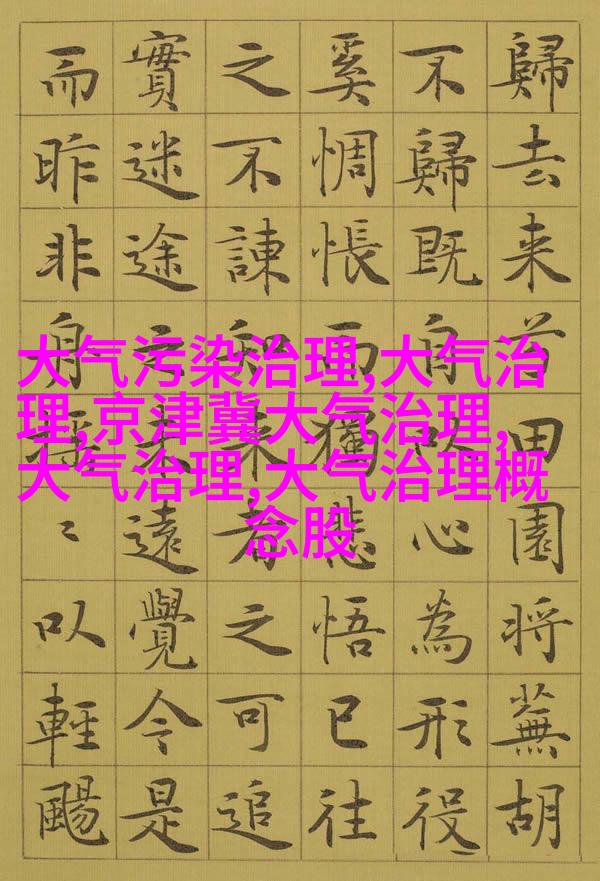 歸去来兮田園将蕪胡
不歸既自以心為形役
奚惆悵而獨悲悟已往
之不諫知来者之可追
實迷途之未遠覺今是
而昨非舟搖〻以輕颺
大气污染治理,大气治
理,京津冀大气治理,
大气治理,大气治理概
念股